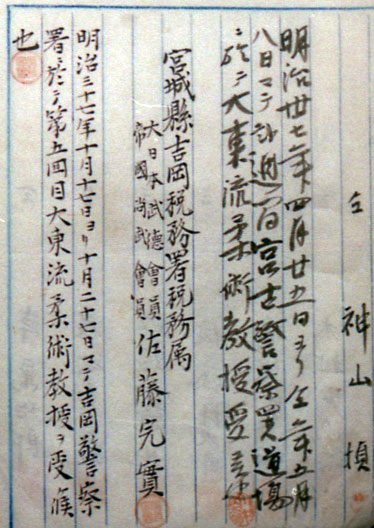 仝 神山 
明治廿七年四月廿五日ヨリ仝年五月
八日マテ 週間 警察署道場
ニ於テ大東流柔術教授受
宮城縣吉岡税務署税務属
大日本武徳會員
帝國尚武會員
佐藤完實
明治三十七年十月十七日ヨリ十月二十七日マテ吉岡警察
署ニ於テ第五回目大東流柔術教授ヲ受候
也